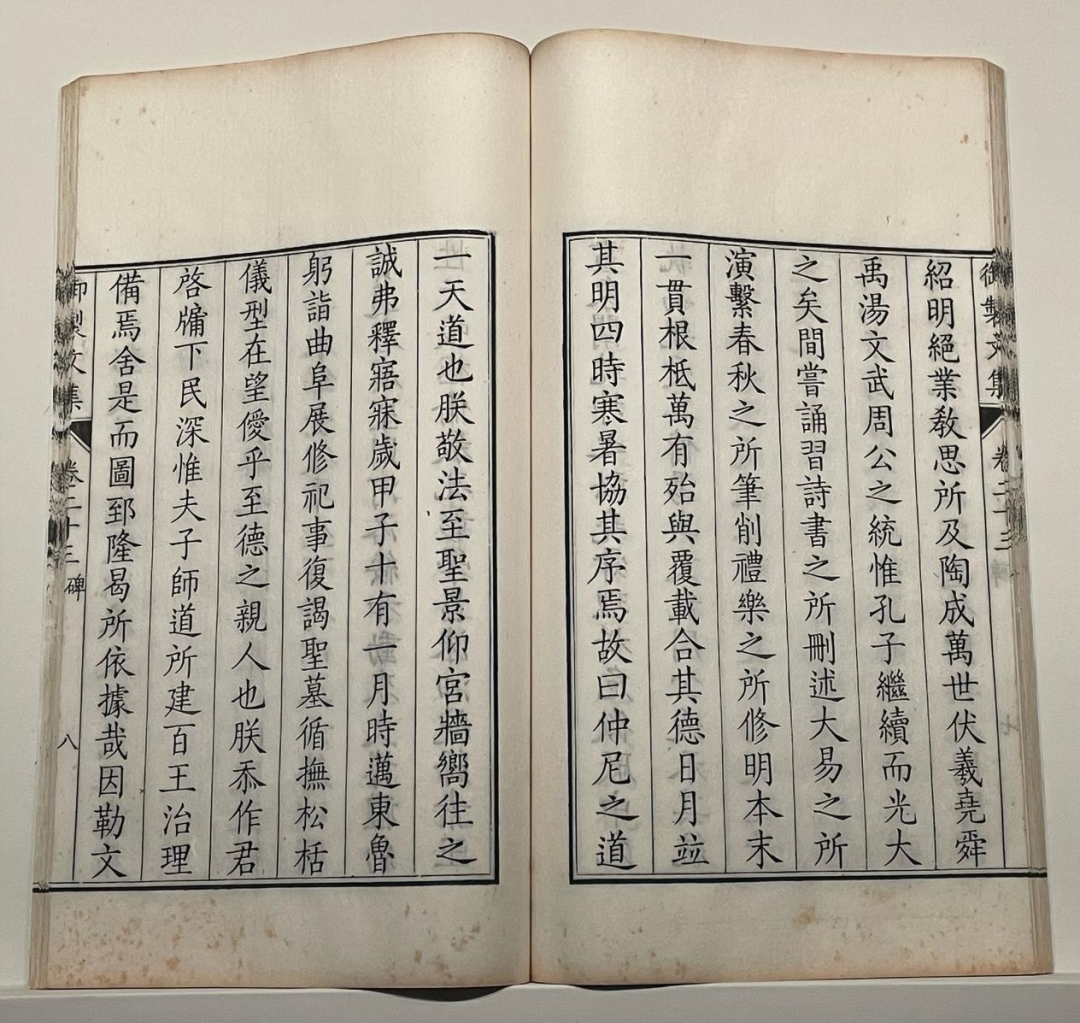 御製文集
卷二十三
七
紹明絕業敎思所及陶成萬世伏羲堯舜
禹湯文武周公之統惟孔子繼續而光大
之矣間嘗誦習詩書之所刪述大易之所
演繫春秋之所筆削禮樂之所修明本末
一貫根柢萬有殆與覆載合其德日月竝
其明四時寒暑協其序焉故曰仲尼之道
一天道也朕敬法至聖景仰宮牆嚮往之
誠弗釋寤寐歲甲子十有一月時邁東魯
躬詣曲阜展修祀事復謁聖墓循撫松栝
儀型在望僾乎至德之親人也朕忝作君
啓牖下民深惟夫子師道所建百王治理
備焉舍是而圖郅隆曷所依據哉因勒文
御製文集
卷二十三 碑
八